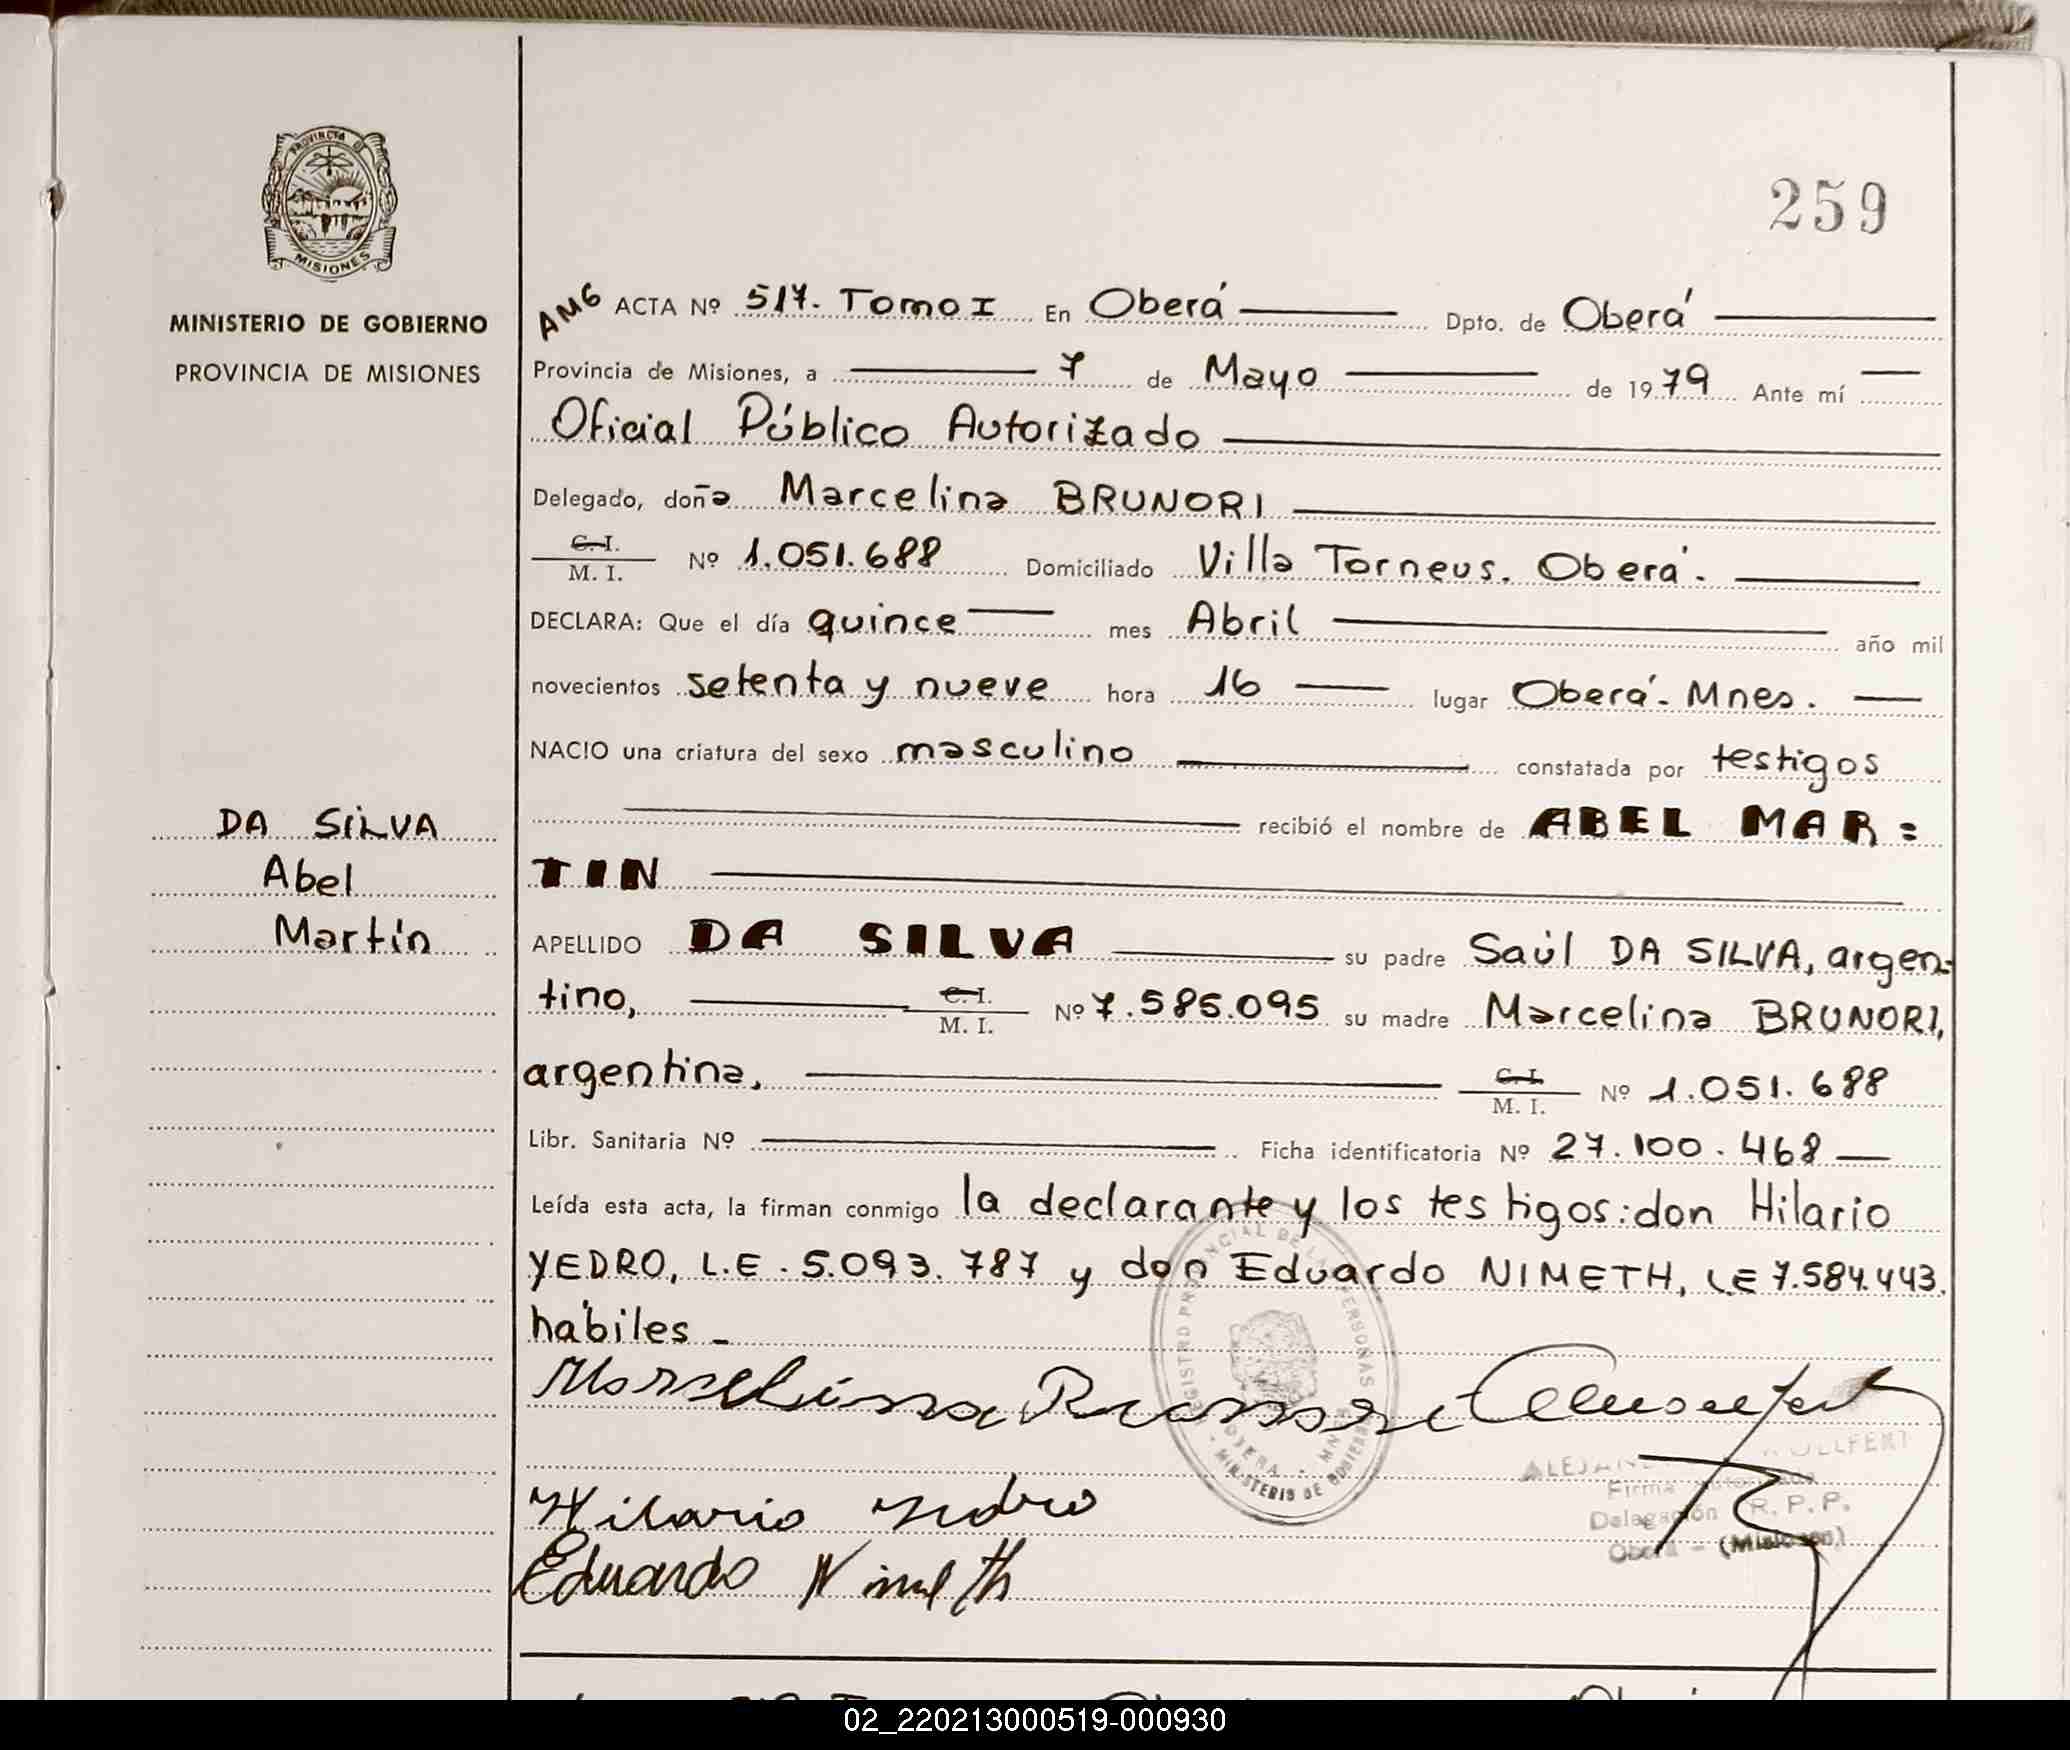 259
PROVINCIA DE
MISIONES
MINISTERIO DE GOBIERNO
PROVINCIA DE MISIONES
AMG ACTA Nº 517. Tomo I En Oberá Dpto. de Oberá
Provincia de Misiones, a 7 de Mayo de 1979 Ante mí
Oficial Público Autorizado
Delegado, doña Marcelina BRUNORI
C. I.
M. I. Nº 1.051.688 Domiciliado Villa Torneus. Oberá.
DECLARA: Que el día quince mes Abril año mil
novecientos setenta y nueve hora 16 lugar Oberá - Mnes.
NACIO una criatura del sexo masculino constatada por testigos
recibió el nombre de ABEL MAR=
TIN
DA SILVA
Abel
Martín
APELLIDO DA SILVA su padre Saúl DA SILVA, argen-
tino, C. I.
M. I. Nº 7.585.095 su madre Marcelina BRUNORI,
argentina, C. I.
M. I. Nº 1.051.688
Libr. Sanitaria Nº Ficha identificatoria Nº 27.100.468
Leída esta acta, la firman conmigo la declarante y los testigos: don Hilario
YEDRO, L.E. 5.093.787 y don Eduardo NIMETH, L.E 7.584.443.
hábiles -
REGISTRO PROVINCIAL DE LAS PERSONAS
OBERA - MNES
MINISTERIO DE GOBIERNO
Hilario Yedro
Eduardo Nimeth
Firma Autorizada
Delegación R. P. P.
Oberá - (Misiones)
02_220213000519-000930